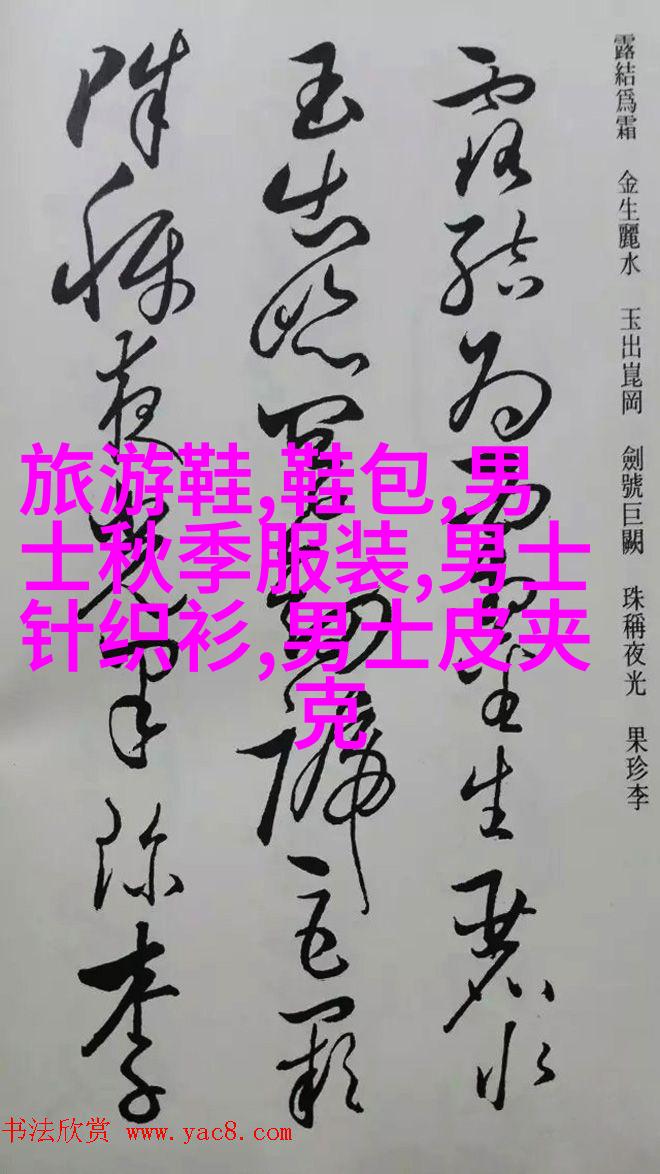 露結爲霜 金生麗水 玉出崑岡 劍號巨闕 珠稱夜光 果珍李
露結為霜金生麗水
玉出崑岡劍號巨闕
珠稱夜光果珍李
旅游鞋,鞋包,男
士秋季服装,男士
针织衫,男士皮夹
克
书法欣赏 www.yac8.com